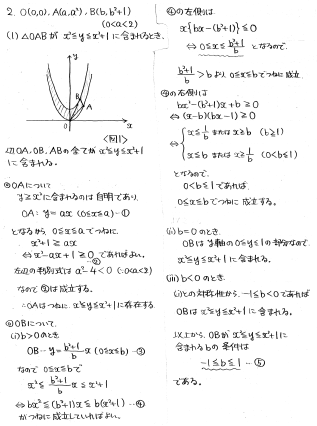 2. O(0,0), A(a,a²), B(b,b²+1)
(0<a<2)
(1) △OABが x²≦y≦x²+1 に含まれるとき、
y
B
A
O
x
<図1>
辺OA, OB, ABの全てが x²≦y≦x²+1
に含まれる。
◎OAについて
y≧x²に含まれるのは自明であり、
OA: y=ax (0≦x≦a) …①
となるから、0≦x≦a でつねに、
x²+1≧ax
⇔ x²-ax+1≧0 であればよい。
②
左辺の判別式は a²-4<0 (∵0<a<2)
なので②は成立する。
∴OAはつねに x²≦y≦x²+1に存在する。
◎OBについて、
(i) b>0のとき
OB…y=b²+1/b x (0≦x≦b) …③
なので 0≦x≦b で
x²≦ b²+1/b x ≦x²+1
⇔ bx²≦(b²+1)x≦b(x²+1) …④
がつねに成立していればよい。
④の左側は
x{bx-(b²+1)}≦0
⇔ 0≦x≦ b²+1/b となるので、
b²+1/b >b より 0≦x≦bでつねに成立
④の右側は
bx²-(b²+1)x+b≧0
⇔ (x-b)(bx-1)≧0
⇔ x≦1/b または x≧b (b≧1)
x≦b または x≧1/b (0<b≦1)
となるので、
0<b≦1であれば、
0≦x≦b でつねに成立する。
(ii) b=0のとき、
OBはy軸の0≦y≦1の部分なので、
x²≦y≦x²+1 に含まれる。
(iii) b<0のとき、
(i)との対称性から、-1≦b<0であれば
OBは x²≦y≦x²+1 に含まれる。
以上から、OBが x²≦y≦x²+1に
含まれるbの条件は
-1≦b≦1 …⑤
である。